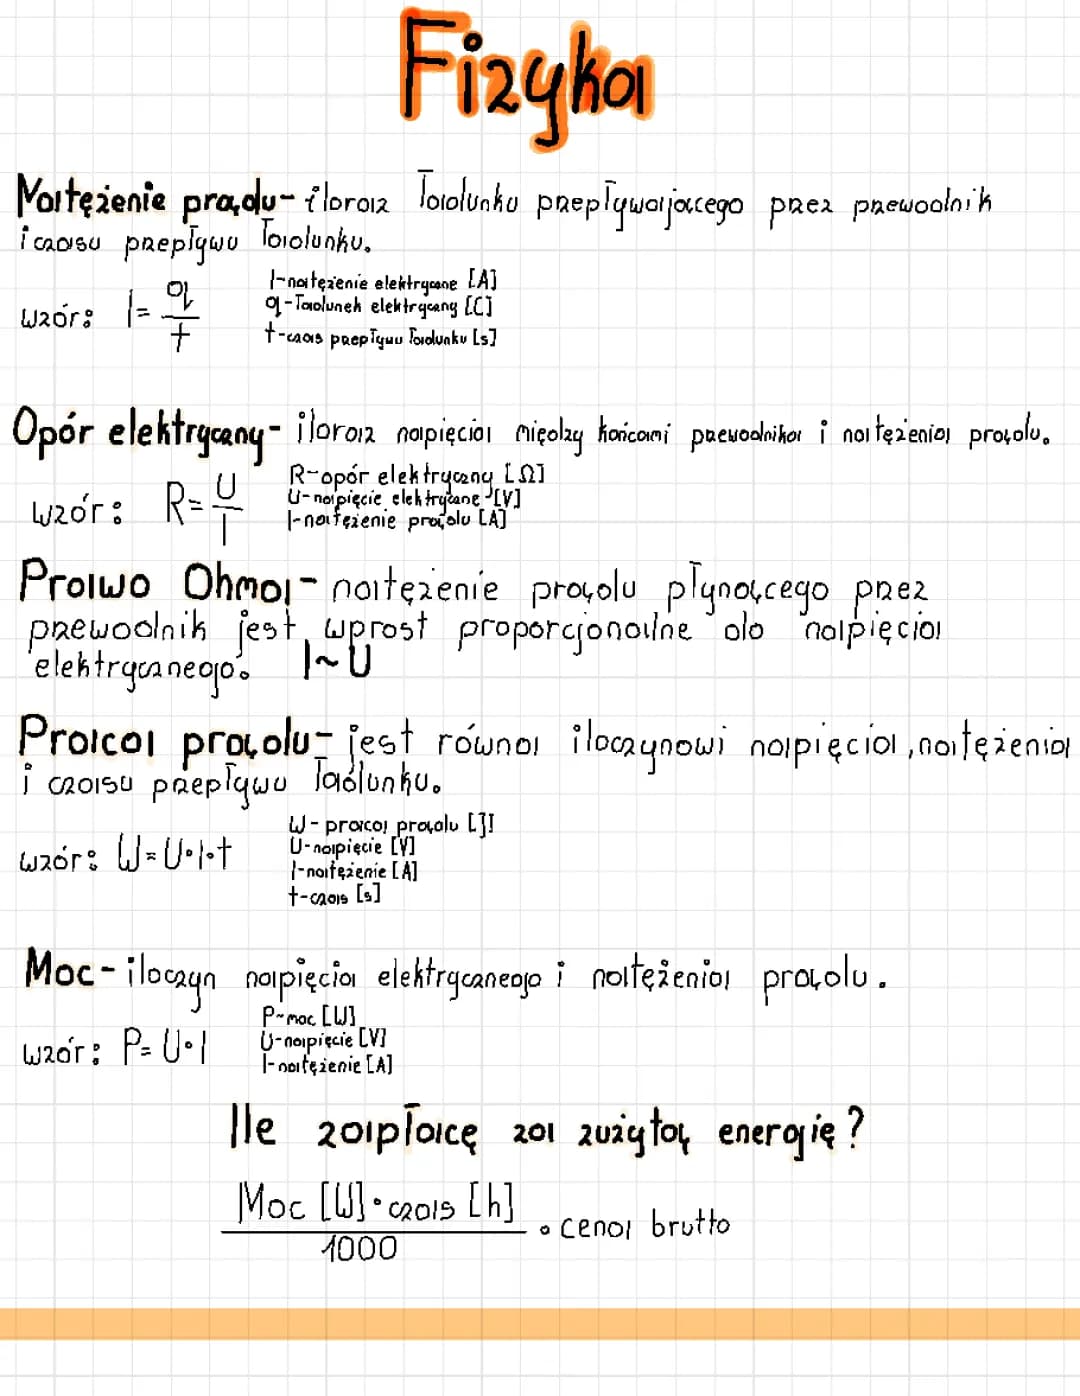 Fizyka
Natężenie prądu- iloraz ładunku przepływającego przez przewodnik
i czasu przepływu ładunku.
wzór: I= q/t
I-natężenie elektryczne [A]
q-ładunek elektryczny [C]
t-czas przepływu ładunku [s]
Opór elektryczny- iloraz napięcia między końcami przewodnika i natężenia prądu.
wzór: R= U/I
R-opór elektryczny [Ω]
U-napięcie elektryczne [V]
I-natężenie prądu [A]
Prawo Ohma- natężenie prądu płynącego przez
przewodnik jest wprost proporcjonalne do napięcia
elektrycznego. I~U
Praca prądu- jest równa iloczynowi napięcia, natężenia
i czasu przepływu ładunku.
wzór: W=U•I•t
W- praca prądu [J]
U-napięcie [V]
I-natężenie [A]
t-czas [s]
Moc- iloczyn napięcia elektrycznego i natężenia prądu.
wzór: P= U•I
P-moc [W]
U-napięcie [V]
I-natężenie [A]
Ile zapłacę za zużytą energię?
Moc [W]•czas [h]
1000
• cena brutto